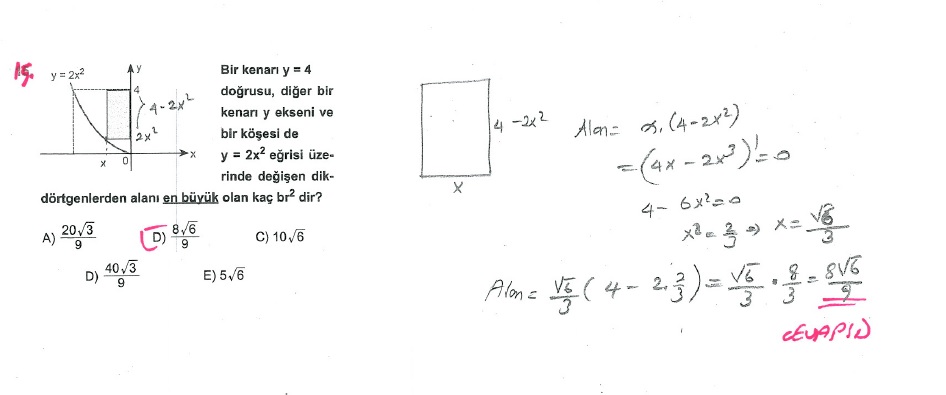 15.
y = 2x²
y
4
4 - 2x²
2x²
x
0
x
Bir kenarı y = 4
doğrusu, diğer bir
kenarı y ekseni ve
bir köşesi de
y = 2x² eğrisi üze-
rinde değişen dik-
dörtgenlerden alanı en büyük olan kaç br² dir?
A) 20√3/9 D) 8√6/9 C) 10√6
D) 40√3/9 E) 5√6
4 - 2x²
x
Alan = x.(4-2x²)
= (4x - 2x³)' = 0
4 - 6x² = 0
x² = 2/3 ⇒ x = √6/3
Alan = √6/3 (4 - 2.2/3) = √6/3 . 8/3 = 8√6/9